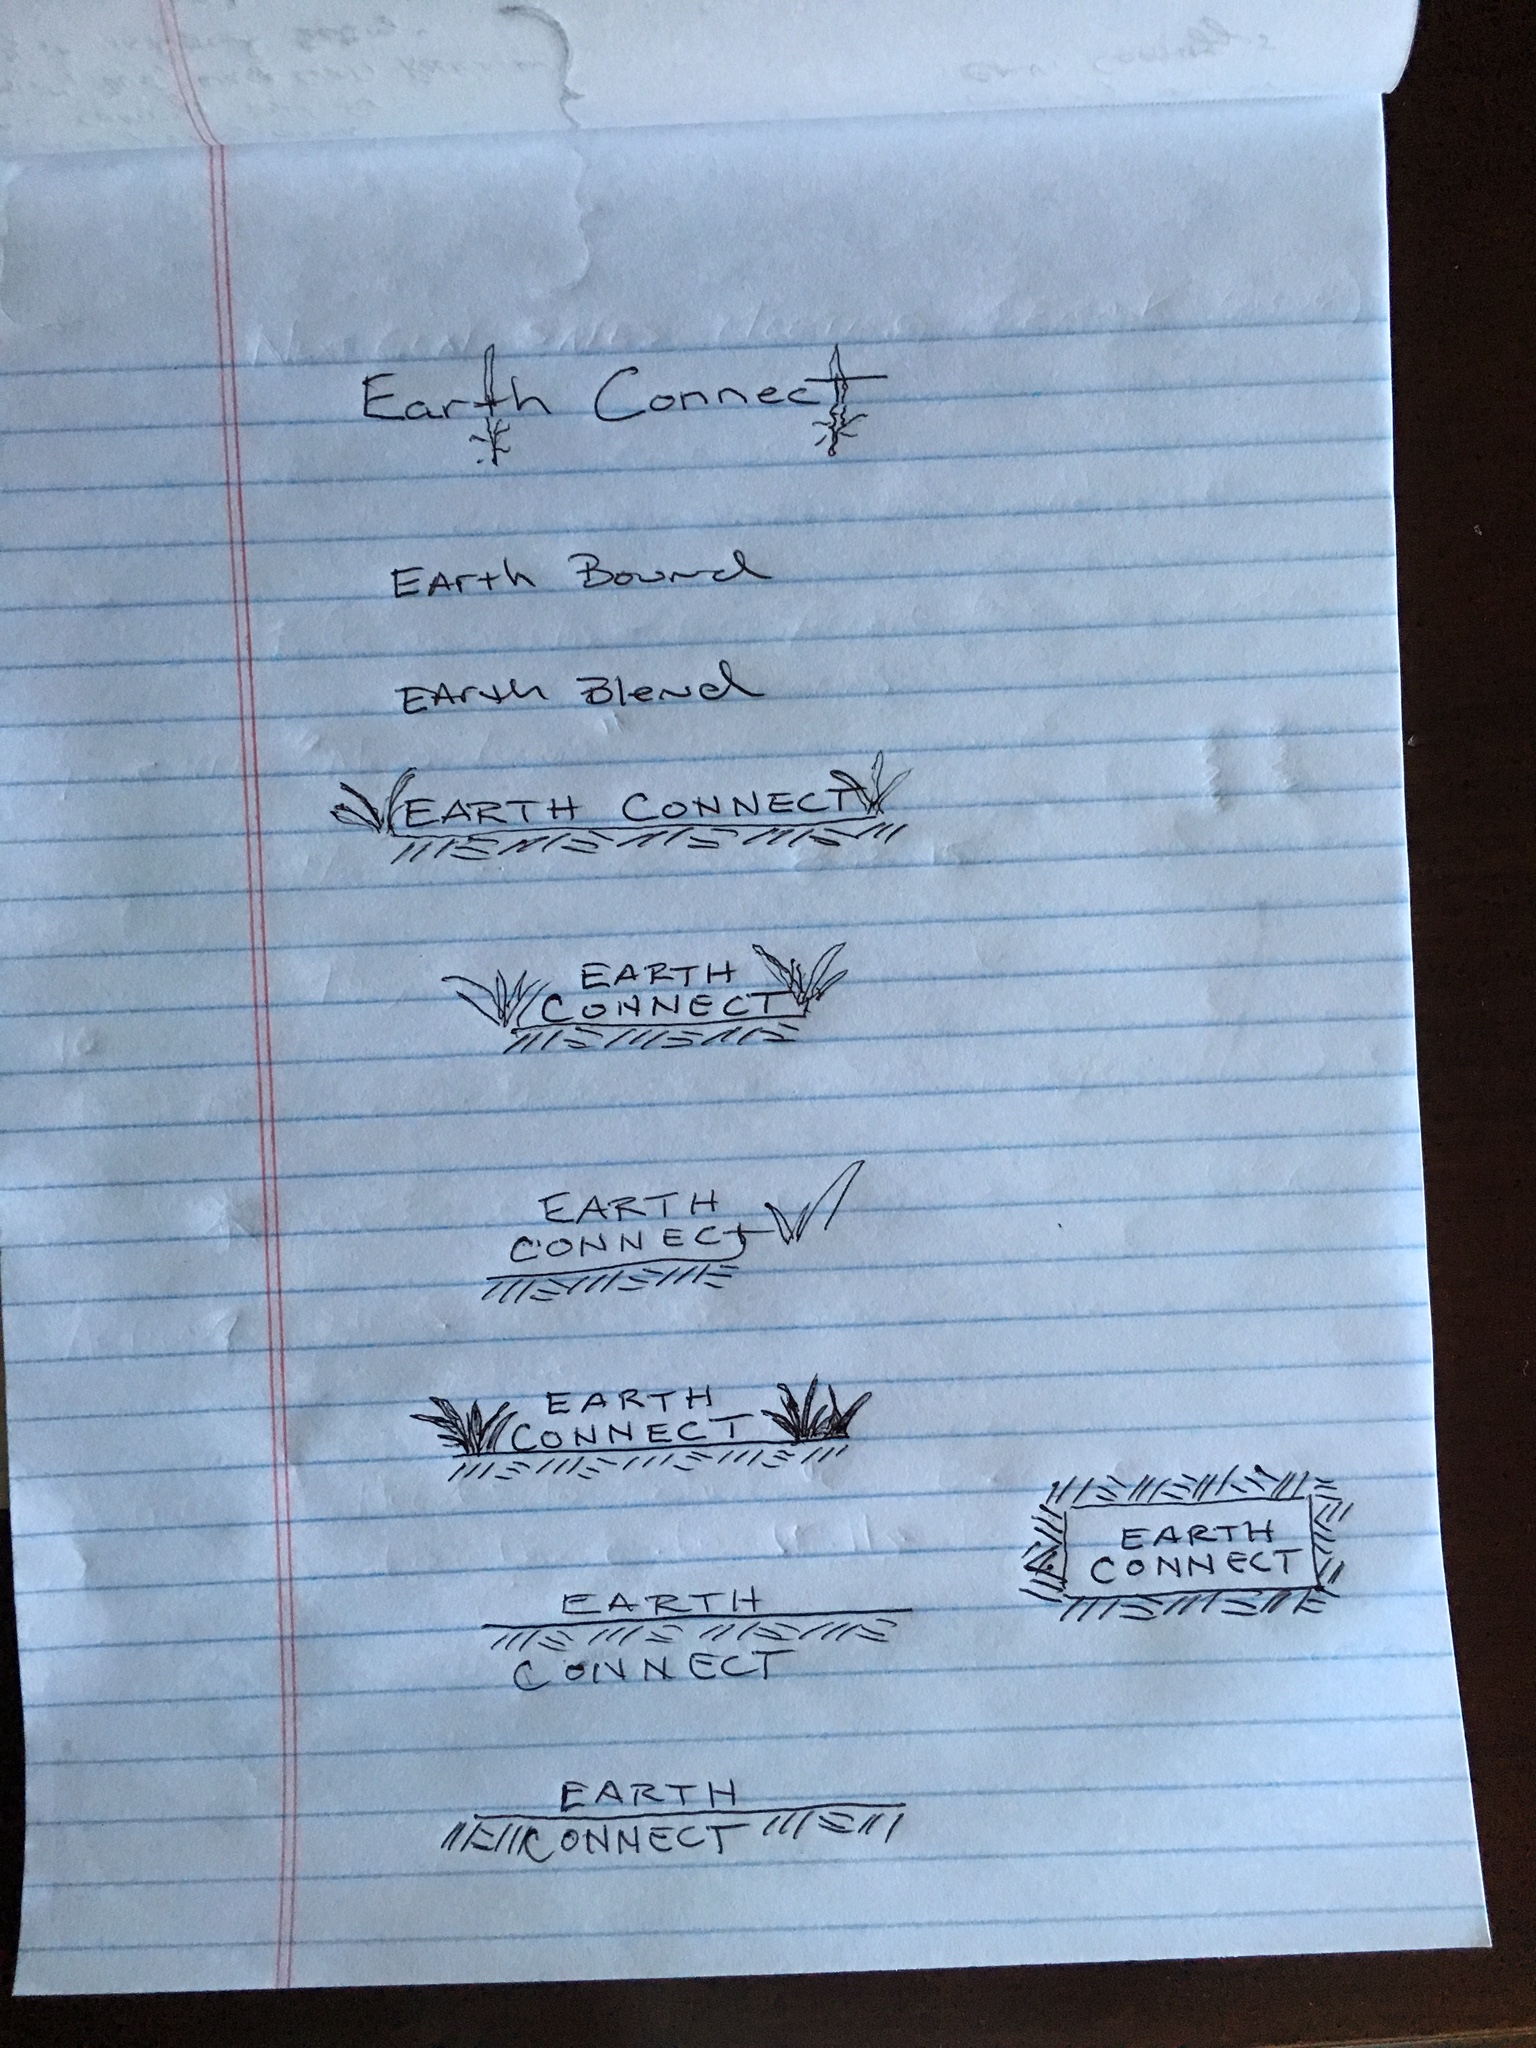 Earth Connect
EArth Bound
EArth Blend
EARTH CONNECT
EARTH
CONNECT
EARTH
CONNECT
EARTH
CONNECT
EARTH
CONNECT
EARTH
CONNECT
EARTH
CONNECT